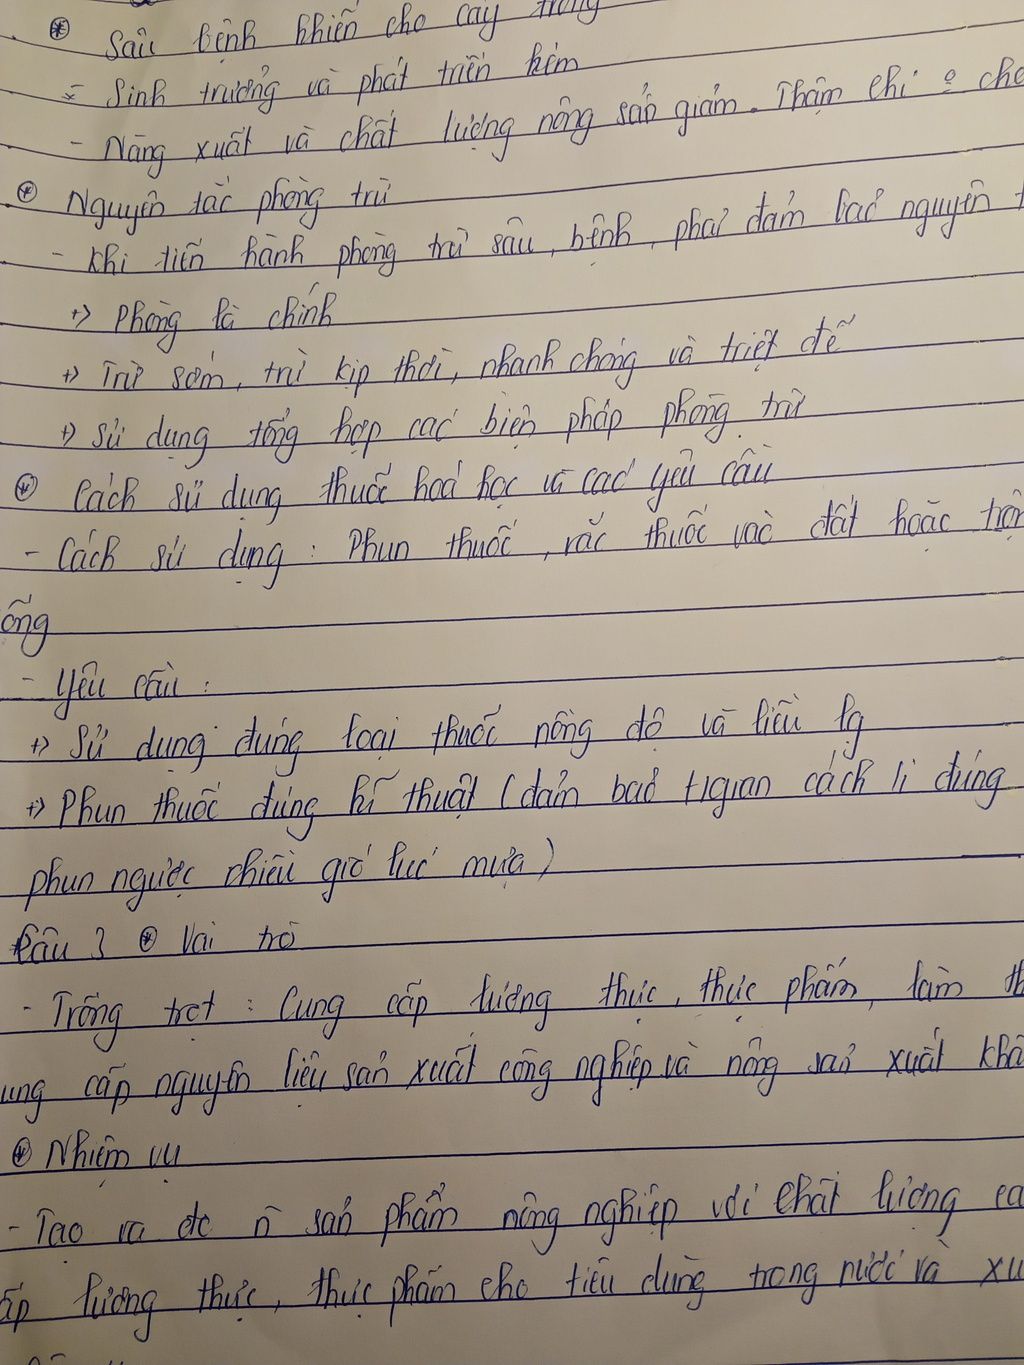 * Sâu bệnh khiến cho cây trồng
- Sinh trưởng và phát triển kém
- Năng xuất và chất lượng nông sản giảm. Thậm chí o cho
* Nguyên tắc phòng trừ
- Khi tiến hành phòng trừ sâu, bệnh, phải đảm bảo nguyên t
+> Phòng là chính
+> Trừ sớm, trừ kịp thời, nhanh chóng và triệt để
+> Sử dụng tổng hợp các biện pháp phòng trừ
* Cách sử dụng thuốc hoá học và các yêu cầu
- Cách sử dụng : Phun thuốc, rắc thuốc vào đất hoặc trộn
ống
- Yêu cầu :
+> Sử dụng đúng loại thuốc nồng độ và liều lg
+> Phun thuốc đúng kĩ thuật (đảm bảo t/gian cách li đúng
phun ngược chiều gió lúc mưa)
Câu 3 * Vai trò
- Trồng trọt : Cung cấp lương thực, thực phẩm, làm th
ung cấp nguyên liệu sản xuất công nghiệp và nông sản xuất khẩ
* Nhiệm vụ
- Tạo ra đc n sản phẩm nông nghiệp với chất lượng ca
ấp lương thực, thực phẩm cho tiêu dùng trong nước và xu